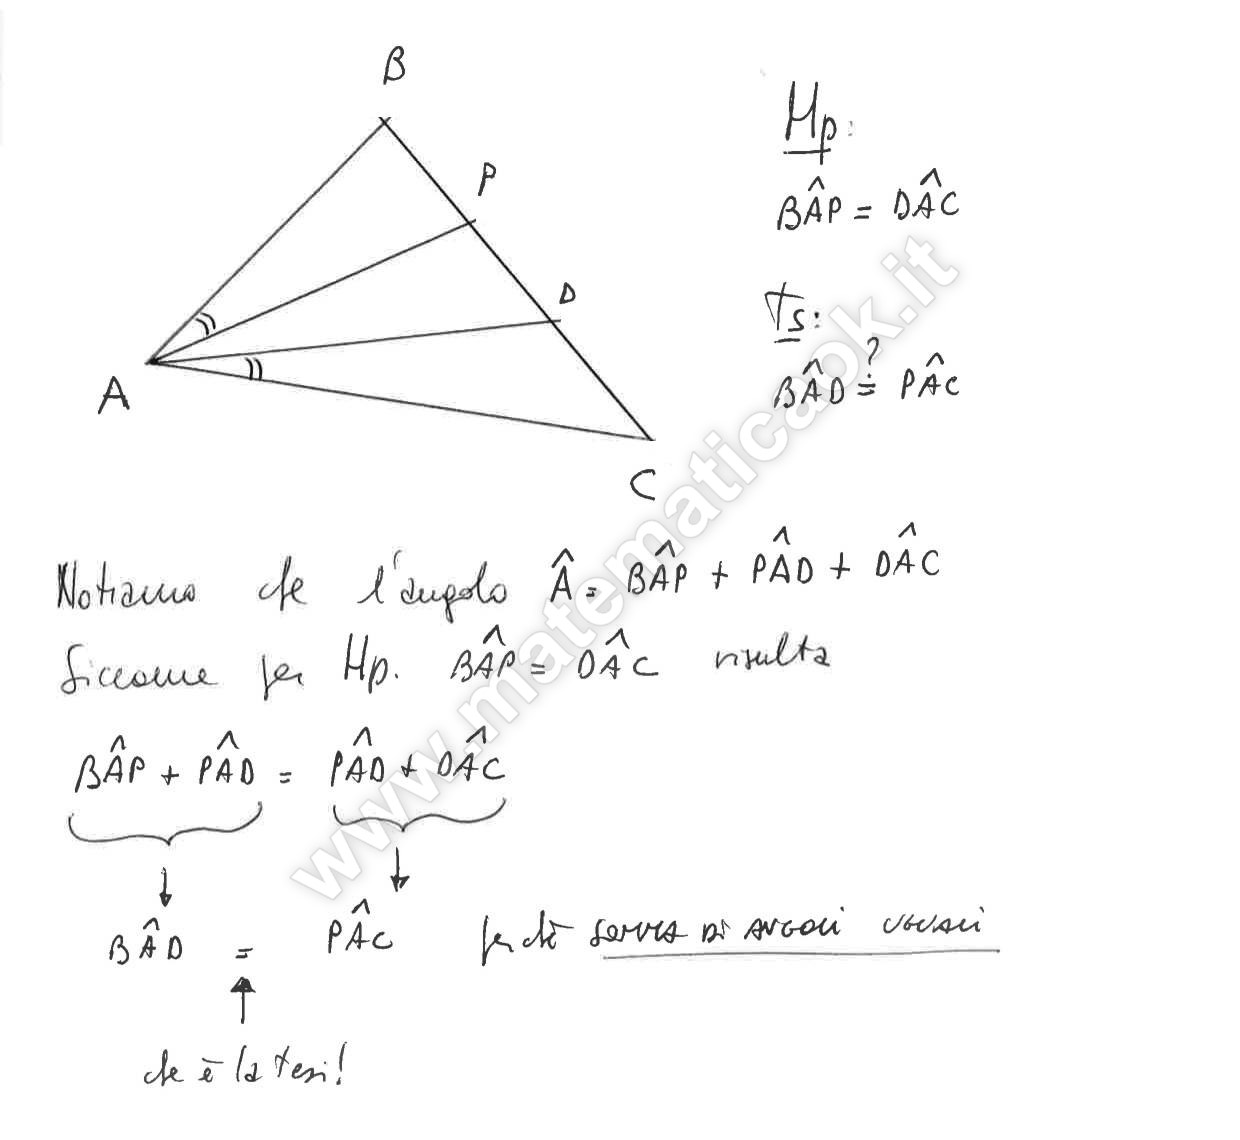 B
P
D
A
C
Hp:
BÂP = DÂC
Ts:
BÂD =? PÂC
Notiamo che l'angolo Â = BÂP + PÂD + DÂC
Siccome per Hp. BÂP = DÂC risulta
BÂP + PÂD = PÂD + DÂC
BÂD = PÂC perchè SOMMA DI ANGOLI UGUALI
che è la tesi!
www.matematicaok.it